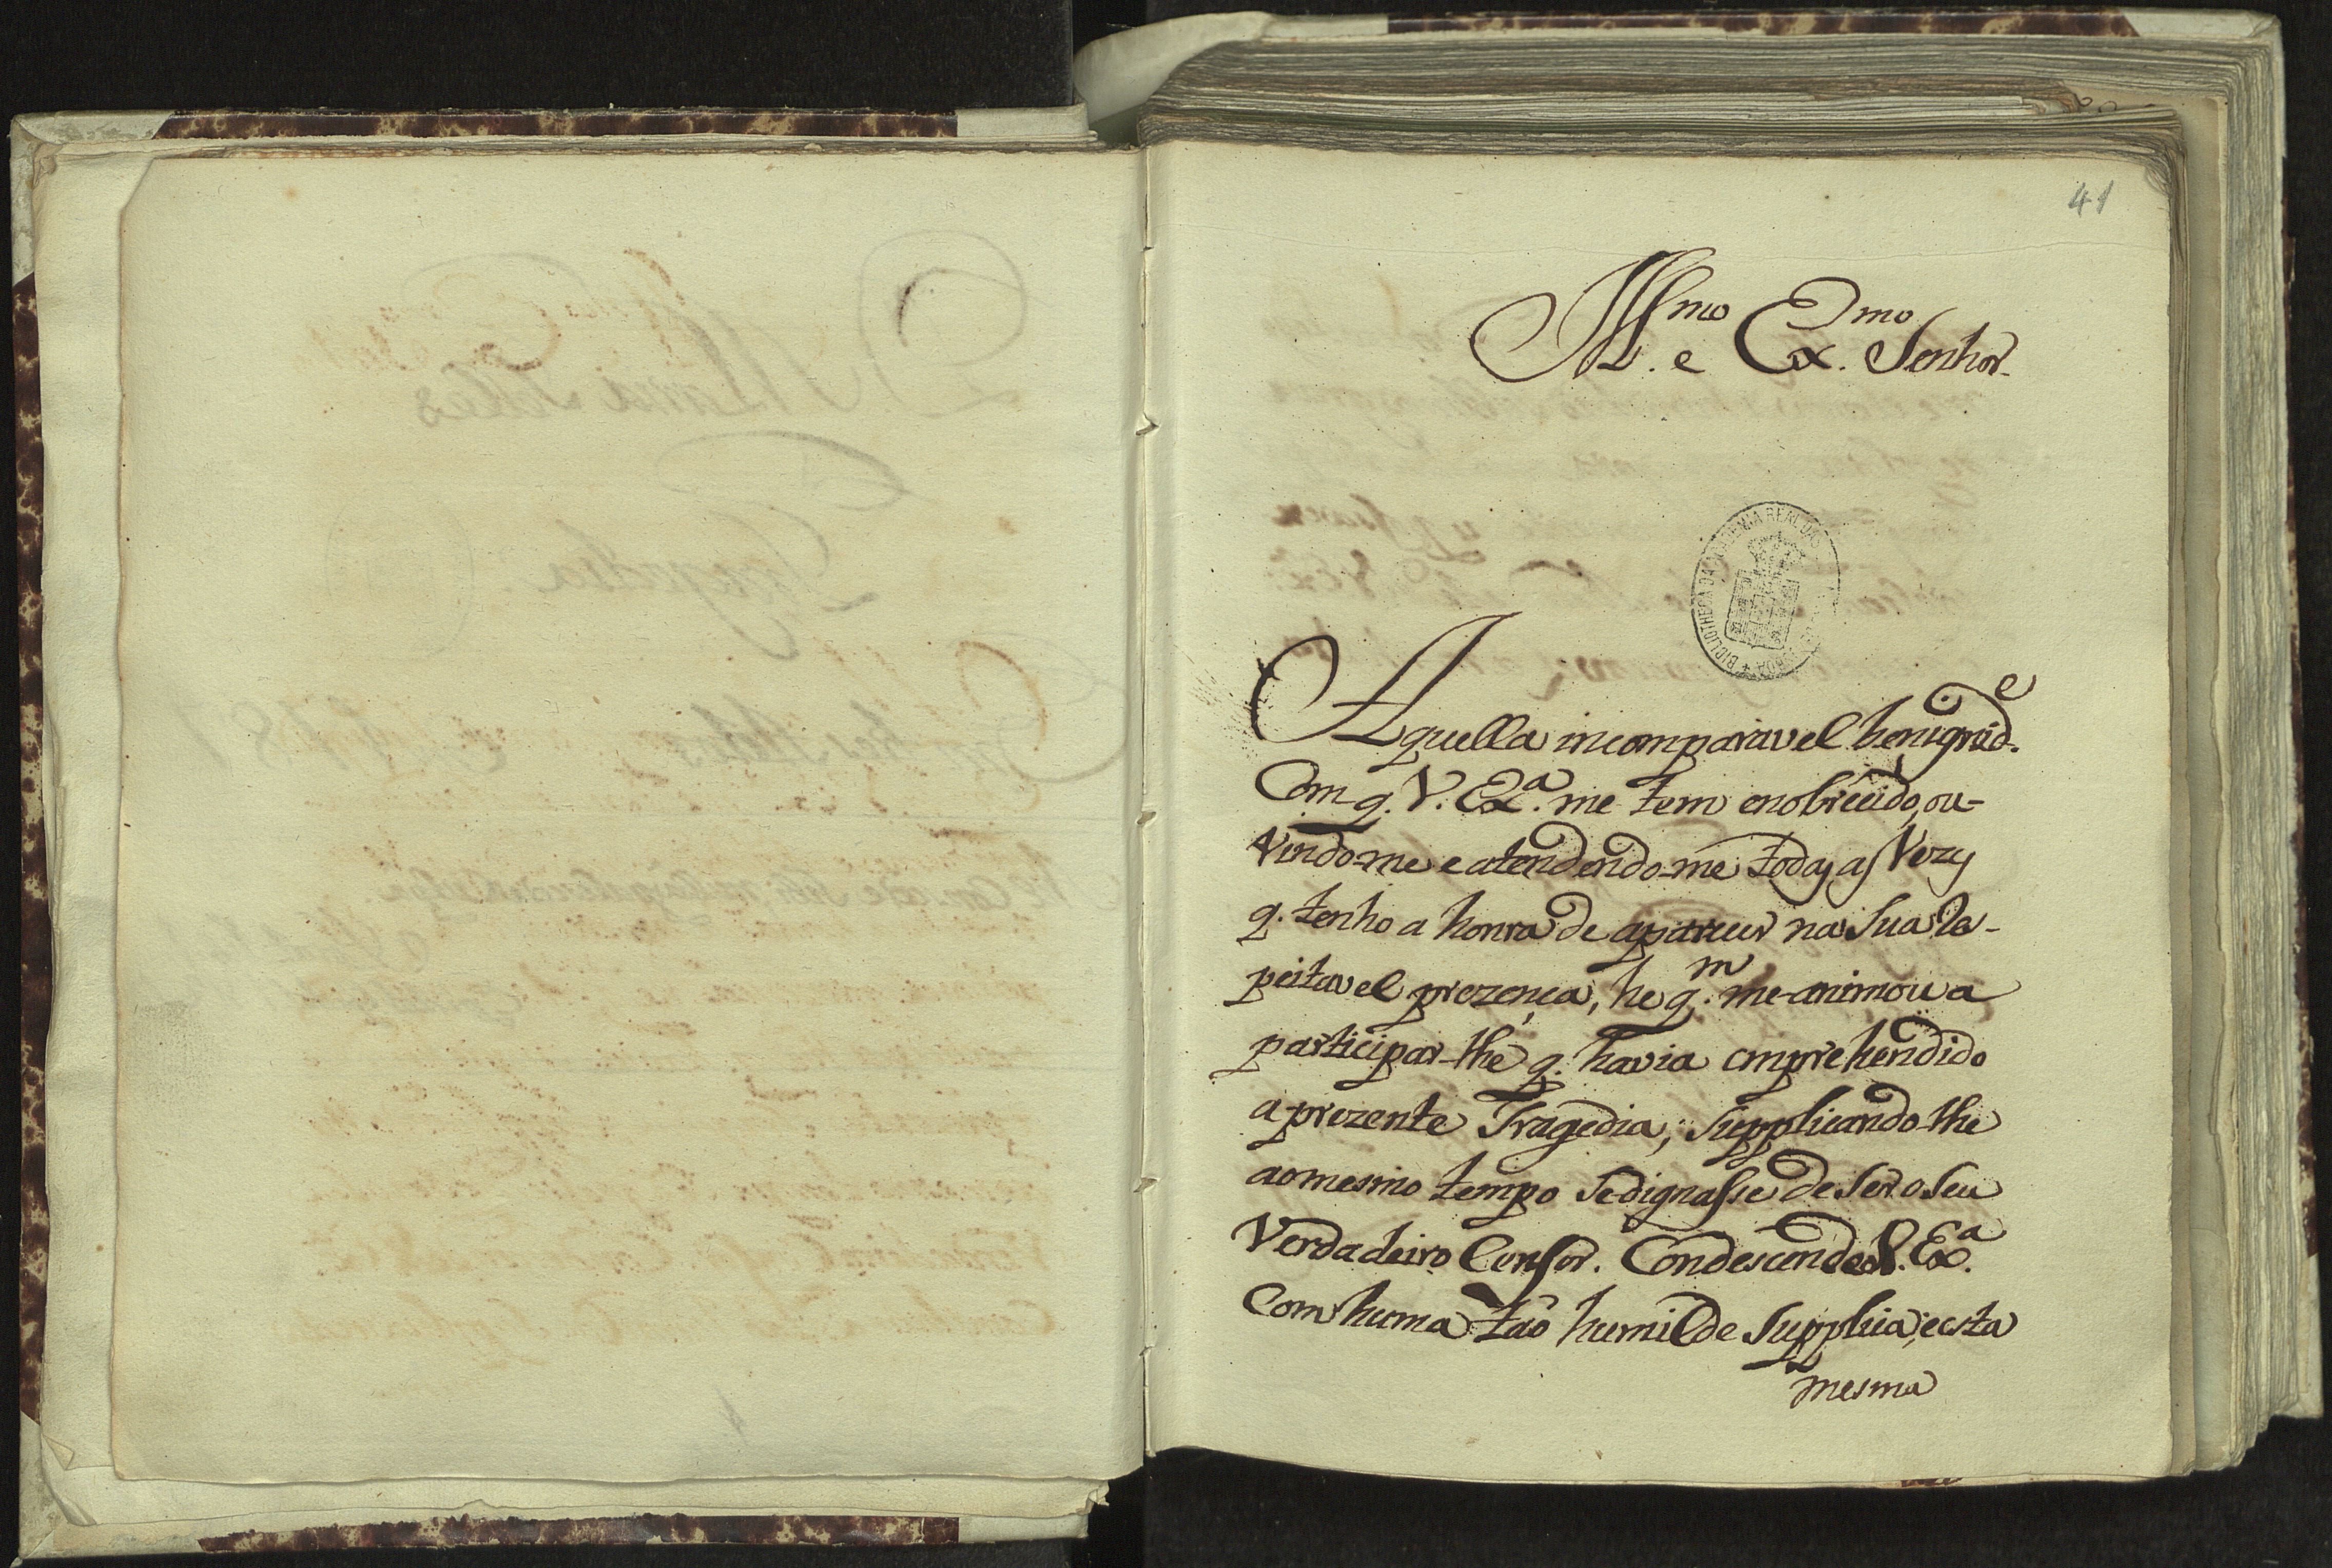 41
Ill.mo e Ex.mo Senhor
BIBLIOTHECA DA ACADEMIA REAL DAS
Aquella incomparavel benignid.e
Com q. V. Ex.a me tem enobrecido, ou-
vindo-me e atendendo-me todas as Vezes
q. tenho a honra de aparecer na Sua Re-
peitavel prezença, he q.m me-animou a
participar-lhe q. havia emprehendido
a prezente Tragedia, Supplicando-lhe
ao mesmo tempo Se dignasse de Ser o Seu
Verdadeiro Censor. Condescendeo V. Ex.a
Com huma tão humilde Supplica, e esta
mesma